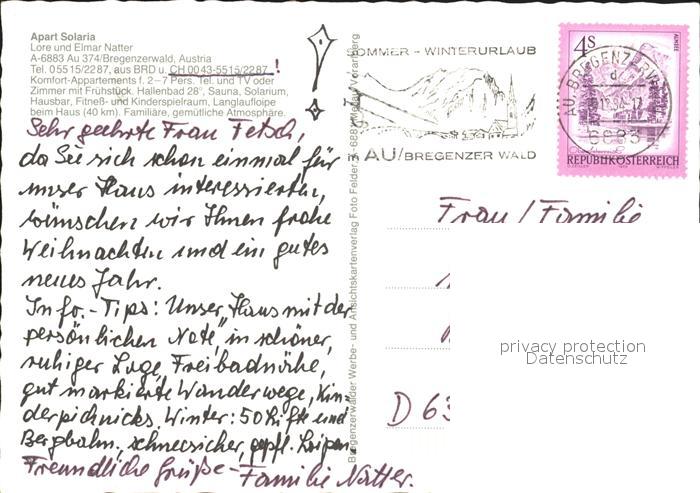 Apart Solaria
Lore und Elmar Natter
A-6883 Au 374/Bregenzerwald, Austria
Tel. 05515/2287, aus BRD u. CH 0043-5515/2287 !
Komfort-Appartements f. 2–7 Pers. Tel. und TV oder
Zimmer mit Frühstück. Hallenbad 28°, Sauna, Solarium,
Hausbar, Fitneß- und Kinderspielraum, Langlaufloipe
beim Haus (40 km). Familiäre, gemütliche Atmosphäre.
Sehr geehrte Frau Fetsch,
da Sie sich schon einmal für
unser Haus interessierten,
wünschen wir Ihnen frohe
Weihnachten und ein gutes
neues Jahr.
Info.-Tips: Unser „Haus mit der
persönlichen Note", in schöner,
ruhiger Lage, Freibadnähe,
gut markierte Wanderwege, Kin-
derpicknicks. Winter: 50 Lifte und
Bergbahn, schneesicher, gepfl. Loipen.
Freundliche Grüße – Familie Natter.
Bregenzerwälder Werbe- und Ansichtskartenverlag Foto Felder, A-6881 Mellau, Vorarlberg
SOMMER - WINTERURLAUB
in AU/BREGENZER WALD
AU, BREGENZERW
d
6883
4S
ALMSEE
REPUBLIK ÖSTERREICH
Frau/Familie
D 63
privacy protection
Datenschutz